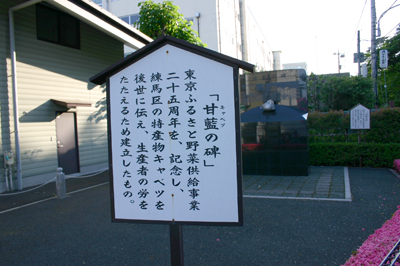 「甘藍の碑」
キャベツ
東京ふるさと野菜供給事業
二十五周年を、記念し、
練馬区の特産物キャベツを
後世に伝え、生産者の労を
たたえるため建立したもの。